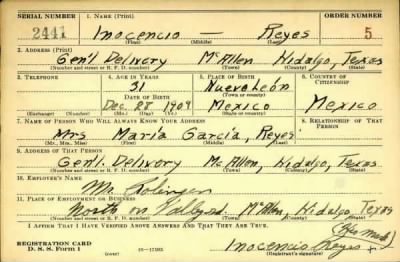 SERIAL NUMBER 1. NAME (Print) ORDER NUMBER
2441 Inocencio — Reyes 5
(First) (Middle) (Last)
2. ADDRESS (Print)
Gen'l Delivery McAllen Hidalgo, Texas
(Number and street or R. F. D. number) (Town) (County) (State)
3. TELEPHONE 4. AGE IN YEARS 5. PLACE OF BIRTH 6. COUNTRY OF CITIZENSHIP
31 Nuevo León
DATE OF BIRTH (Town or county)
Dec. 28 1909 Mexico Mexico
(Exchange) (Number) (Mo.) (Day) (Yr.) (State or country)
7. NAME OF PERSON WHO WILL ALWAYS KNOW YOUR ADDRESS 8. RELATIONSHIP OF THAT PERSON
Mrs María García, Reyes
(Mr., Mrs., Miss) (First) (Middle) (Last)
9. ADDRESS OF THAT PERSON
Gen'l. Delivery McAllen, Hidalgo, Texas
(Number and street or R. F. D. number) (Town) (County) (State)
10. EMPLOYER'S NAME
Mr.
11. PLACE OF EMPLOYMENT OR BUSINESS
North on McAllen, Hidalgo, Texas
(Number and street or R. F. D. number) (Town) (County) (State)
I AFFIRM THAT I HAVE VERIFIED ABOVE ANSWERS AND THAT THEY ARE TRUE.
(His mark)
REGISTRATION CARD Inocencio Reyes +
D. S. S. Form 1 (over) (Registrant's signature)